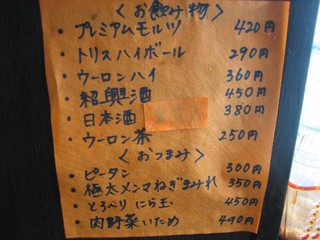 ＜お飲み物＞
・プレミアムモルツ 420円
・トリスハイボール 290円
・ウーロンハイ 360円
・紹興酒 450円
・日本酒 380円
・ウーロン茶 250円
＜おつまみ＞
・ピータン 300円
・極太メンマねぎまみれ 350円
・とろべり にら玉 450円
・肉野菜いため 490円